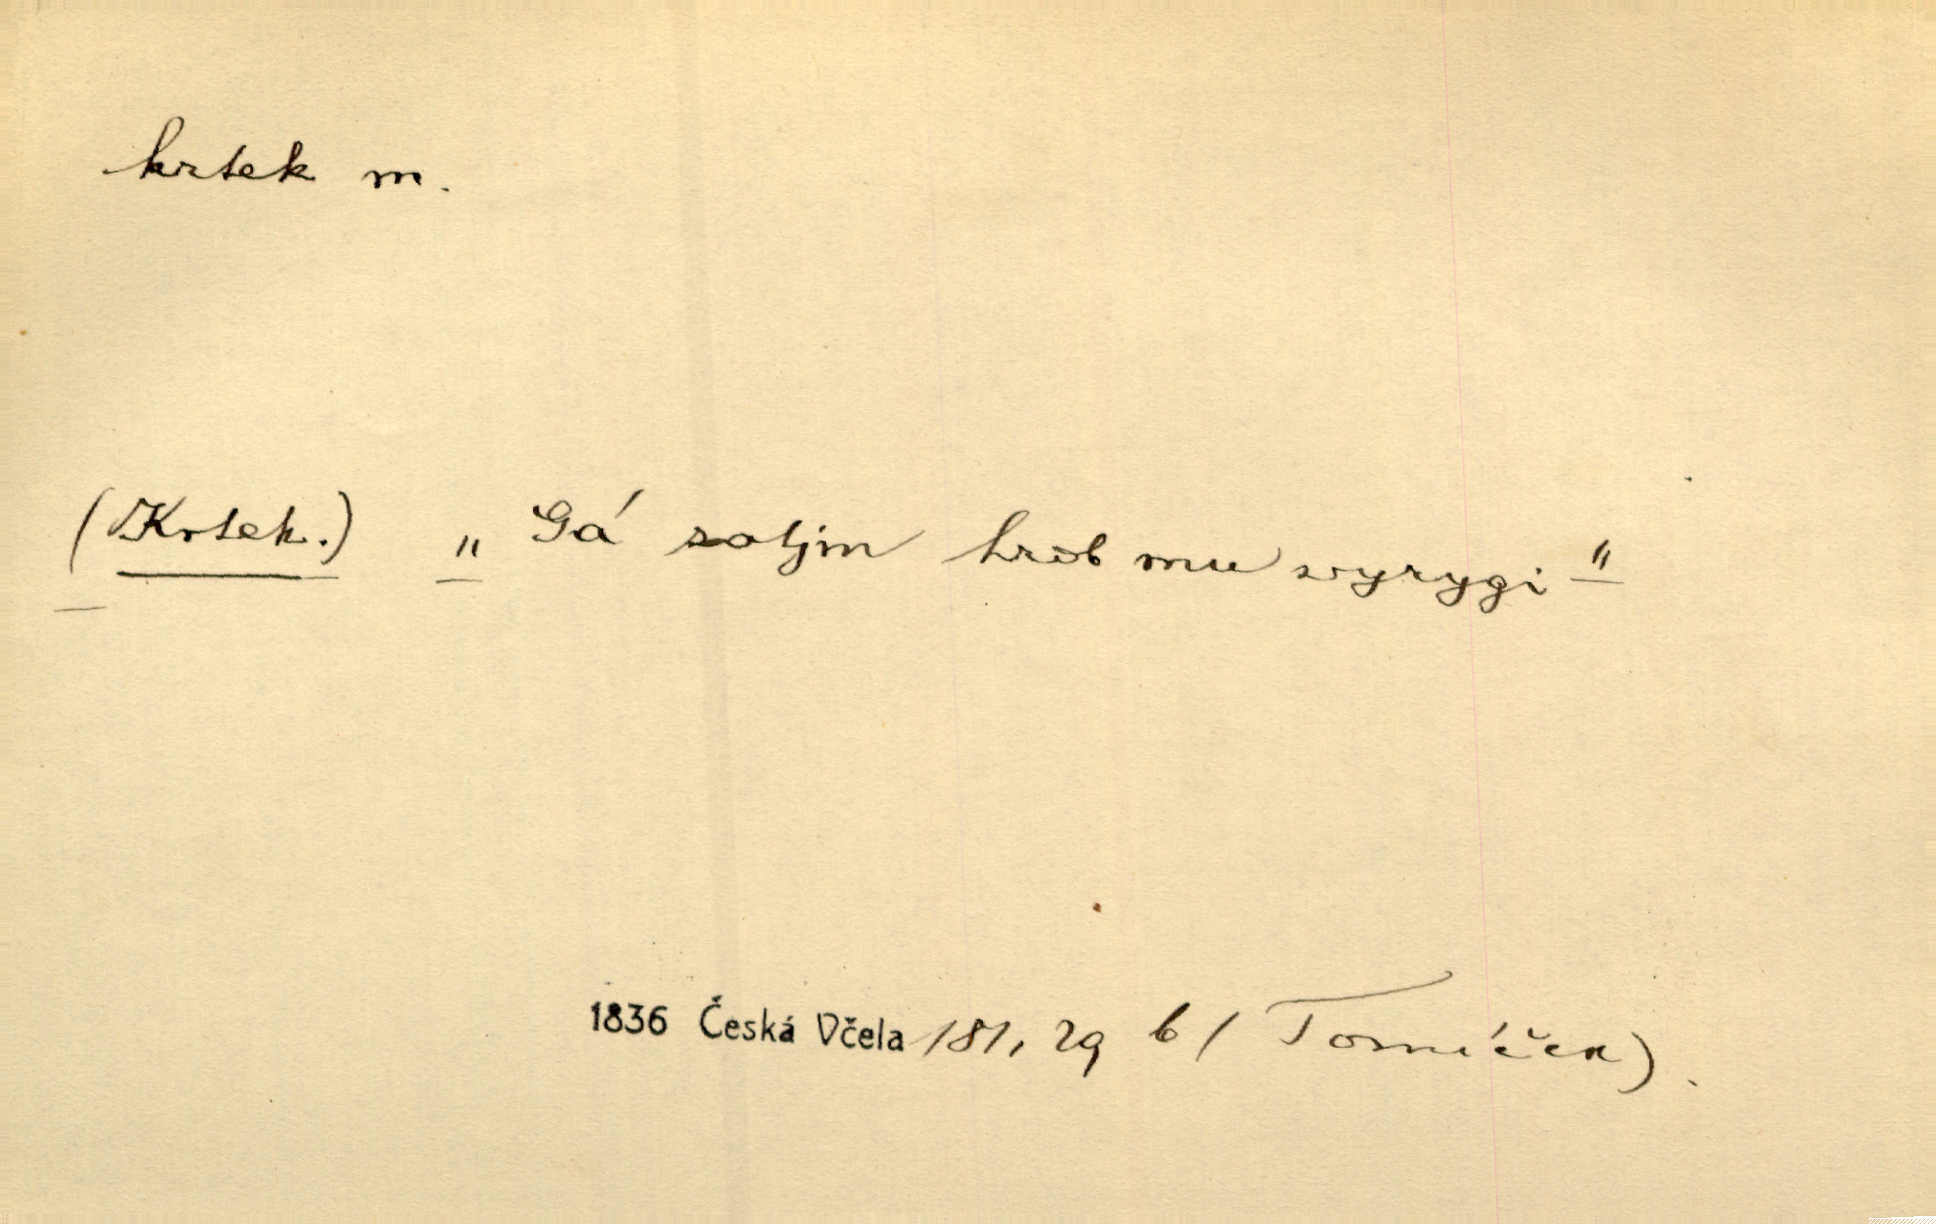 krtek m.
(Krtek.) „ Gá zatjm hrob mu vyrygi “
1836 Česká Včela 181, 29 b (Tomíček).